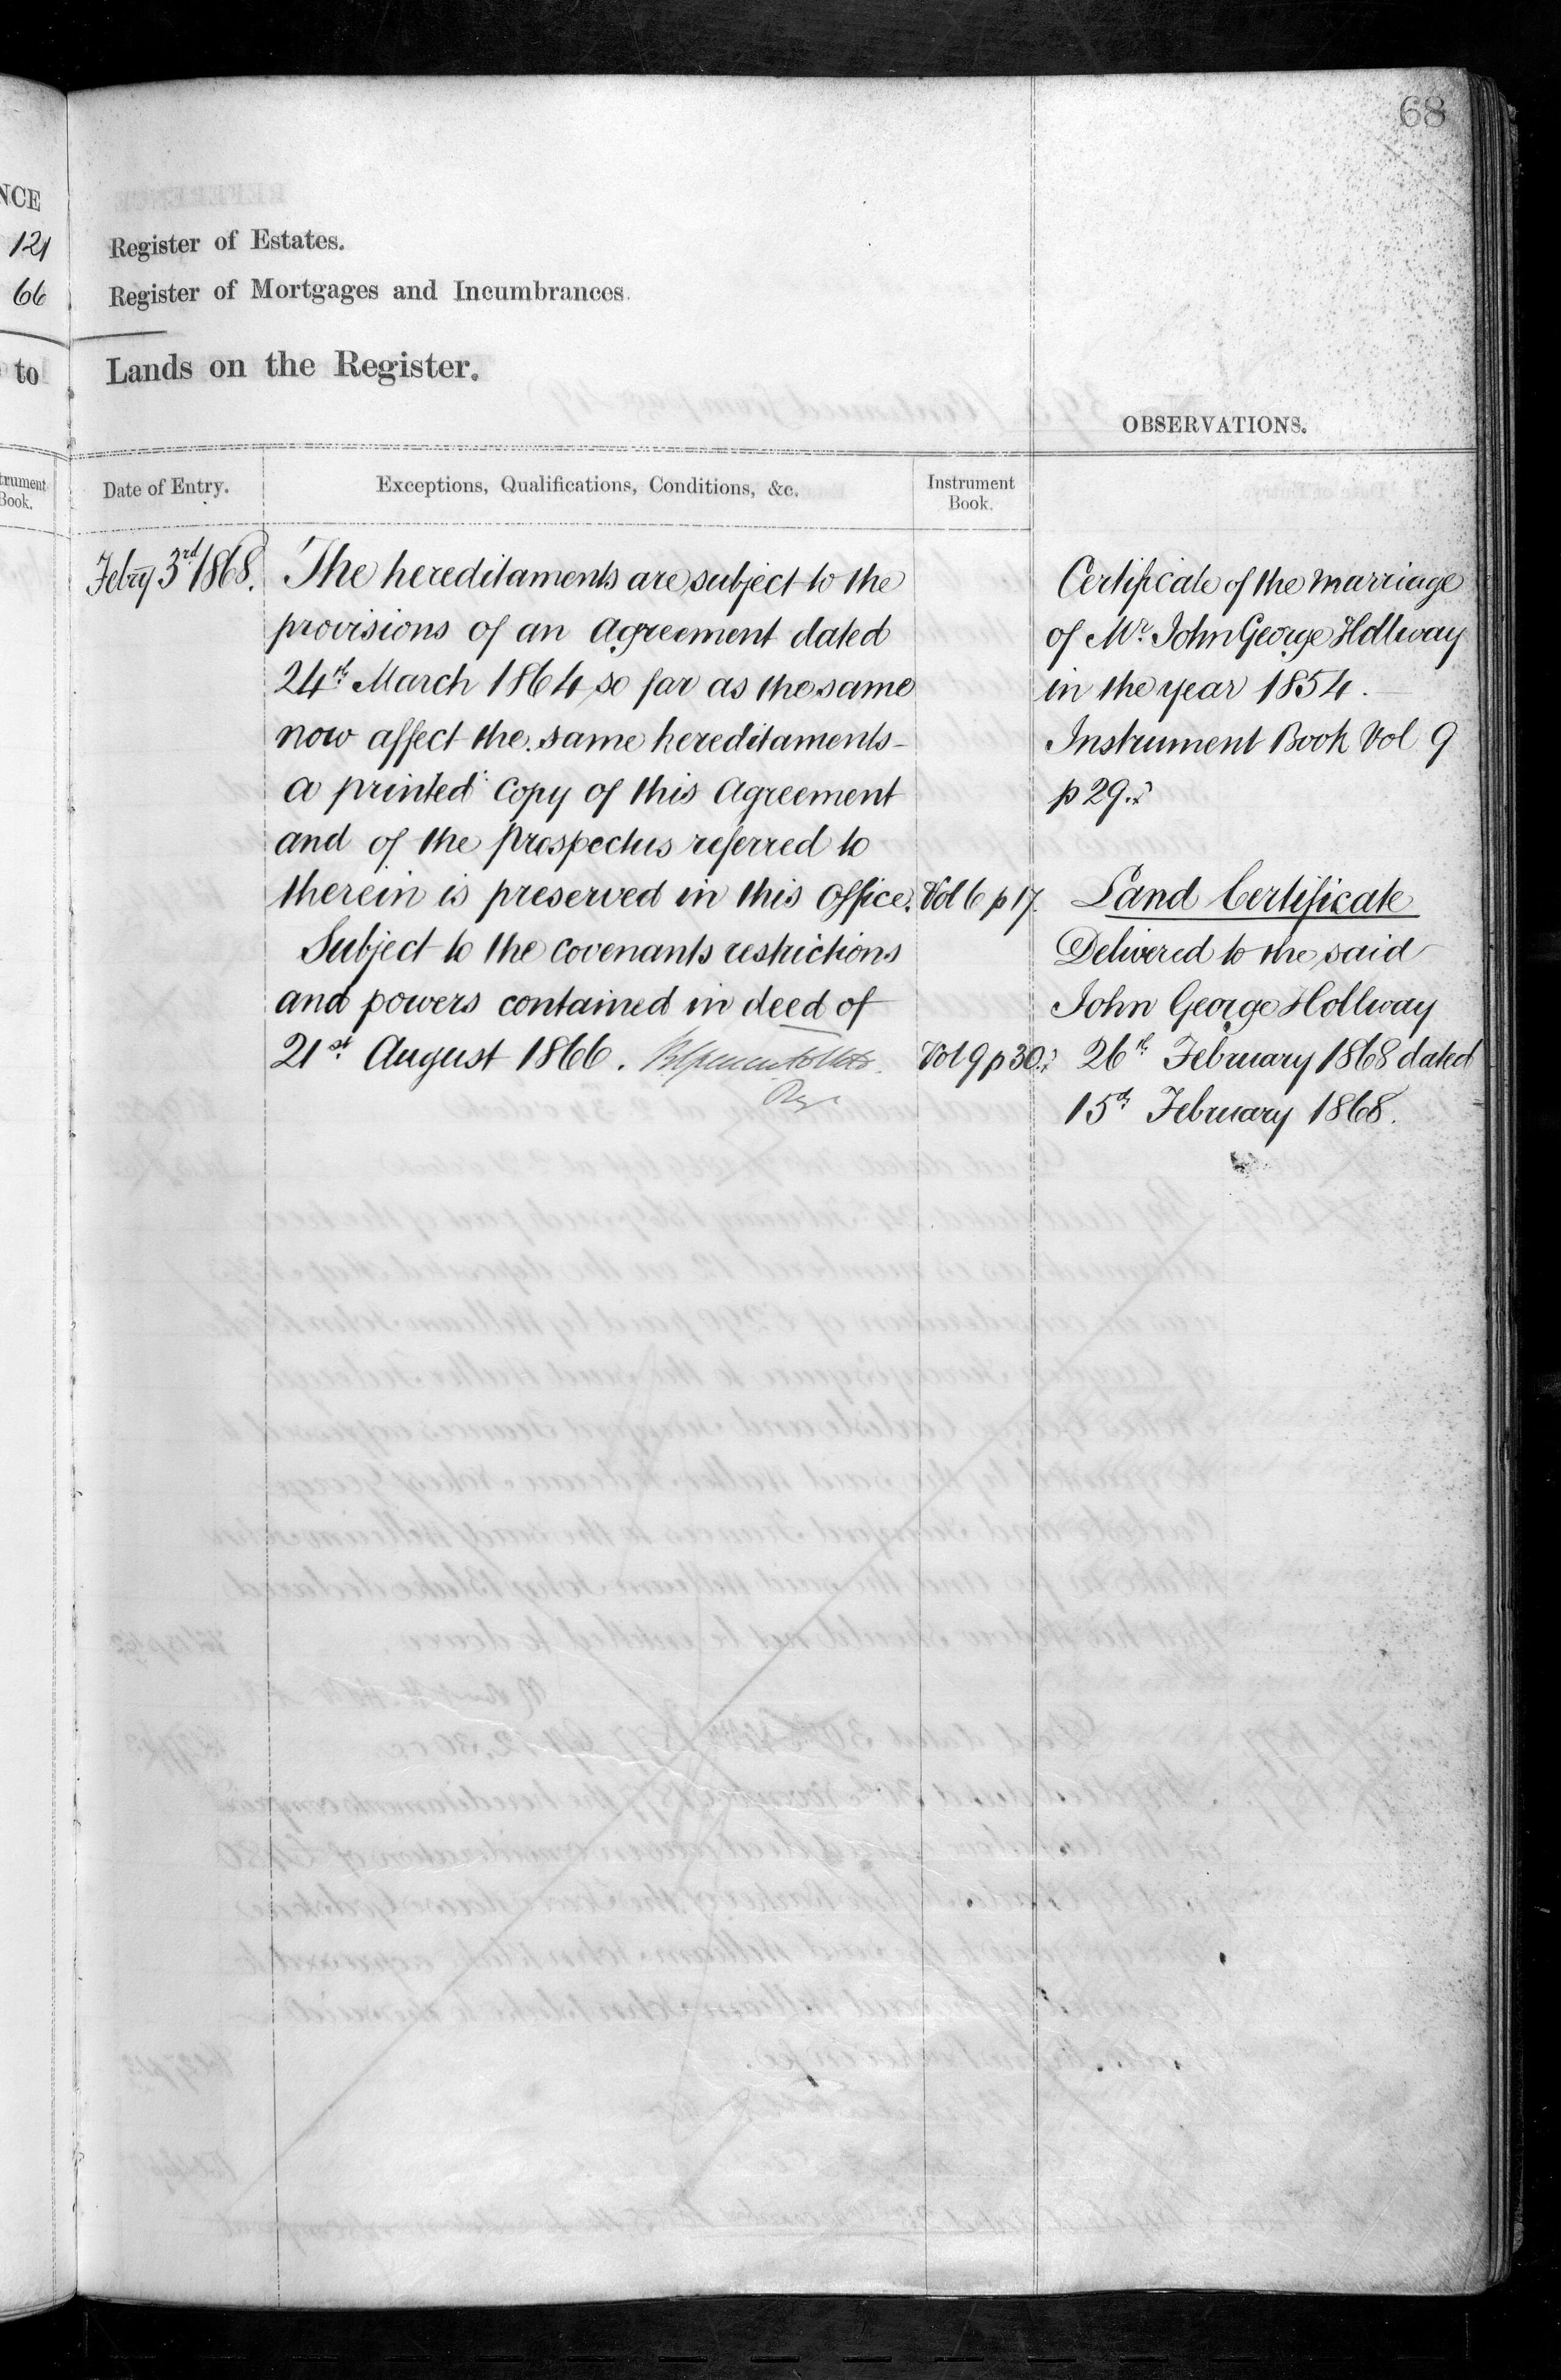 68
NCE
121
Register of Estates.
66
Register of Mortgages and Incumbrances.
to
Lands on the Register.
OBSERVATIONS.
trument
Book.
Date of Entry.
Exceptions, Qualifications, Conditions, &c.
Instrument
Book.
Febry 3rd 1868.
The hereditaments are subject to the
provisions of an Agreement dated
24th March 1864 so far as the same
now affect the same hereditaments-
a printed Copy of this Agreement
and of the Prospectus referred to
therein is preserved in this Office. Vol 6 p 17.
Subject to the covenants restrictions
and powers contained in deed of
21st August 1866. Vol 9 p 30.
Certificate of the marriage
of Mr. John George Hollway
in the year 1854.
Instrument Book Vol 9
p 29.
Land Certificate
Delivered to the said
John George Hollway
26th February 1868 dated
15th February 1868.